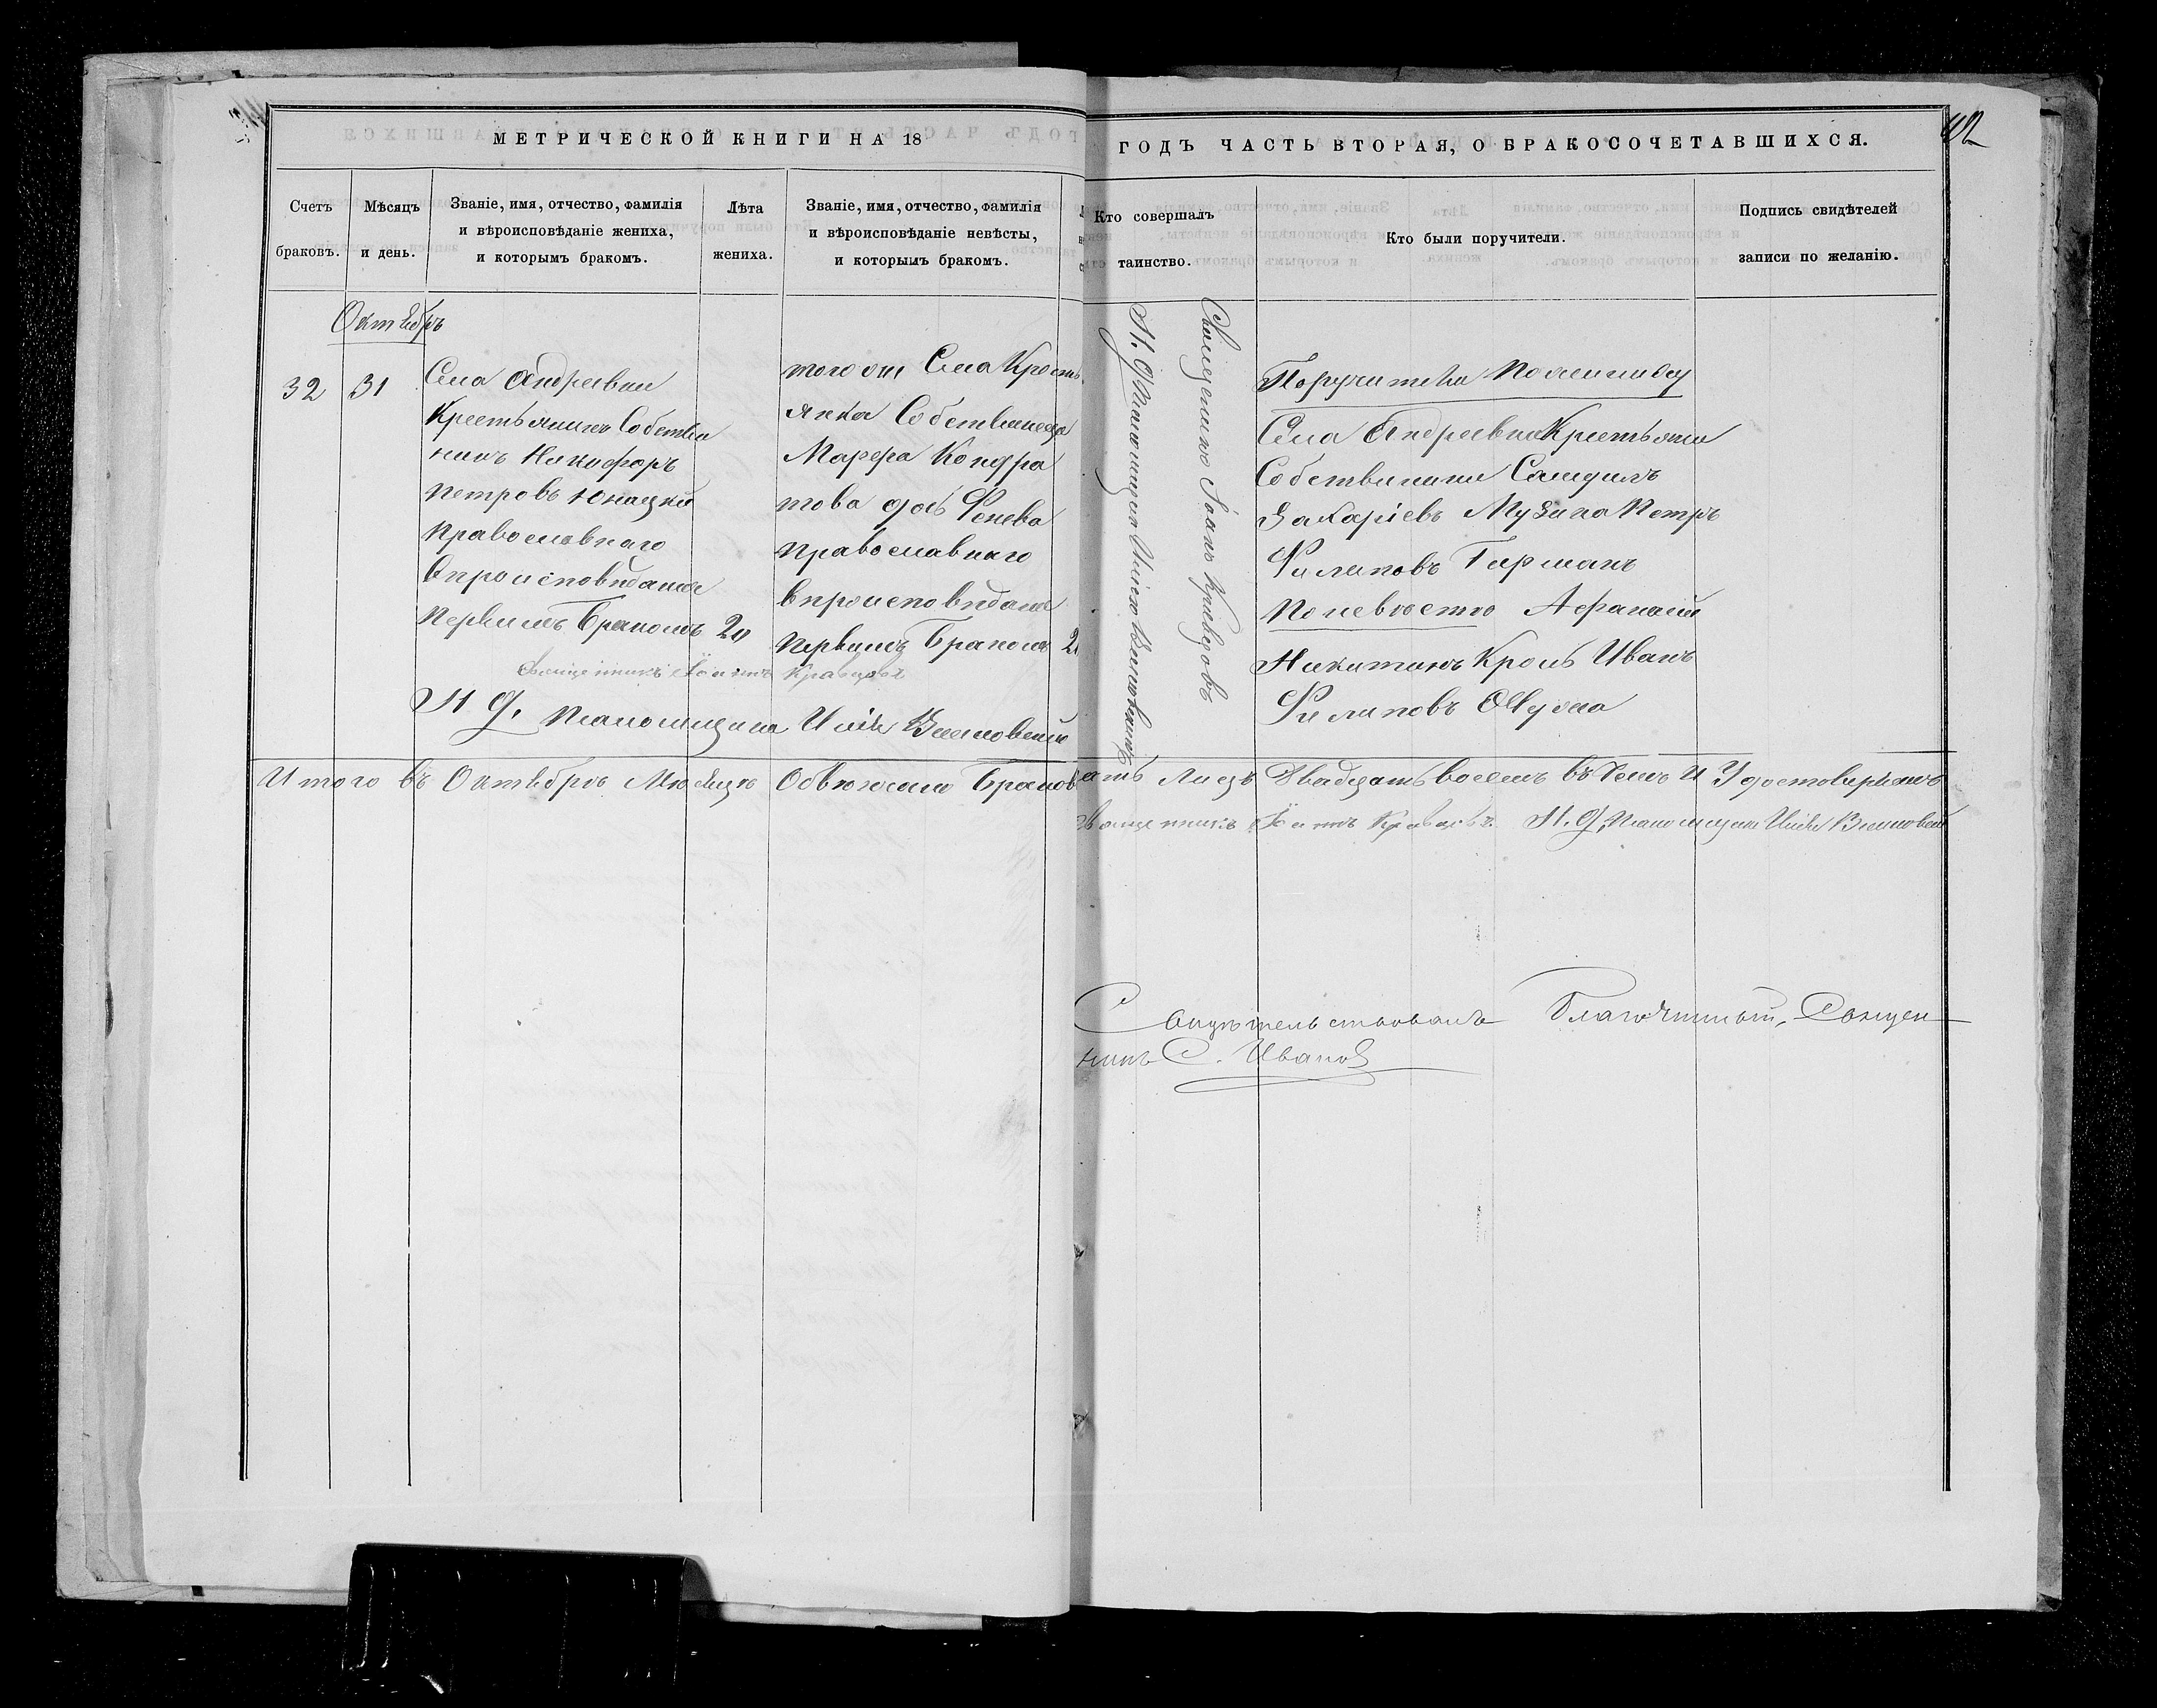 МЕТРИЧЕСКОЙ КНИГИ НА 18
ГОДЪ ЧАСТЬ ВТОРАЯ, О БРАКОСОЧЕТАВШИХСЯ.
Счетъ браковъ.
Мѣсяцъ и день.
Званіе, имя, отчество, фамилія
и вѣроисповѣданіе жениха,
и которымъ бракомъ.
Лѣта жениха.
Званіе, имя, отчество, фамилія
и вѣроисповѣданіе невѣсты,
и которымъ бракомъ.
Кто совершалъ
таинство.
Кто были поручители.
Подпись свидѣтелей
записи по желанію.
Октябрь
32
31
Села Андреевки
Крестьянинъ Собствен
никъ Никифоръ
Петровъ Юнацкій
Православнаго
Вѣроисповѣданія
Первымъ Бракомъ 20
того же Села Кресть
янка Собственица
Марфа Кондра
това дочь
Православнаго
вѣроисповѣданія
Первымъ Бракомъ
Священникъ Іоаннъ Кравцовъ
И. д. Псаломщика
Священникъ Іоаннъ Кравцовъ
И. д. Псаломщика
Поручители По жениху
Села Андреевки Крестьяне
Собственники Самуилъ
Захаріевъ Петръ
Филиповъ Гирманъ
По невѣстѣ Афанасій
Никитинъ Кроль Иванъ
Филиповъ
Итого въ Октябрѣ Мѣсяцѣ Браков
Лицъ Двадцать восемъ въ чемъ и Удостовѣряемъ
Священникъ Іоаннъ Кравцовъ. И. д. Псаломщика
Свидѣтельствовалъ Благочинный, Священ
никъ С. Иванов